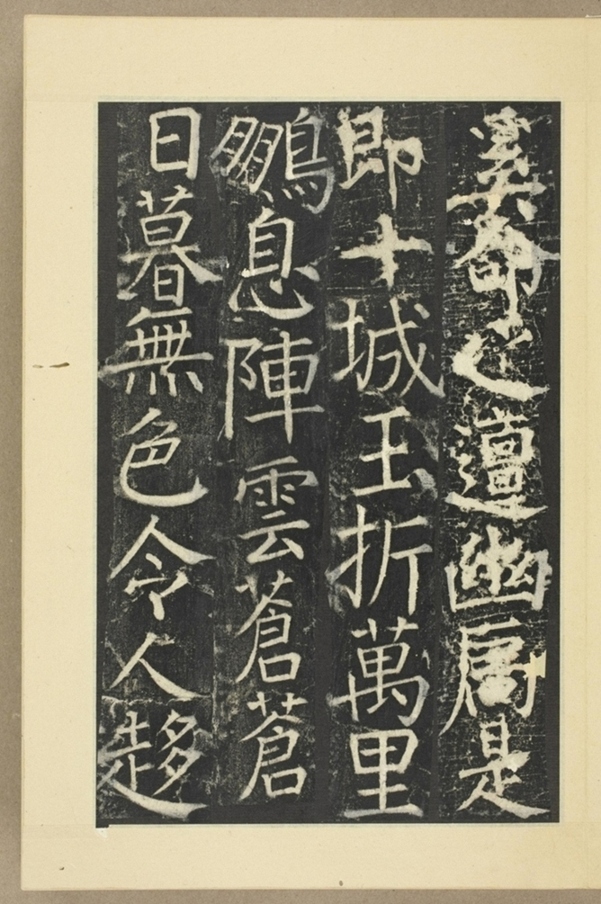 奚命之邅幽扃是
即十城玉折萬里
鵬息陣雲蒼蒼
日暮無色令人趍